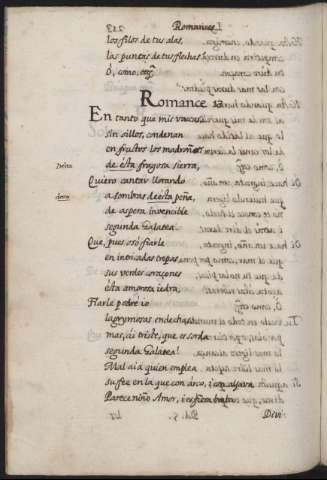 Romances
los filos de tus alas,
las puntas de tus flechas
Ó, como, etc.
Romance 12
En tanto que mis vacas
sin oillos, condenan
en frutos los madroños
Deita
de ésta fragosa sierra,
Quiero cantar llorando
dexta
a sombras de esta peña,
de aspera invencible
segunda Galatea.
Que, pues osó fiarle
en intricadas trepas
sus verdes corazones
esta amorosa iedra,
Fiarle podré io
lagrymosas endechas
mas, ai triste, que es sorda
segunda Galatea!
Mal aia quien emplea
su fee en la que con arco, i con aljava
Parece niño Amor, i es fiera brava
Devi-